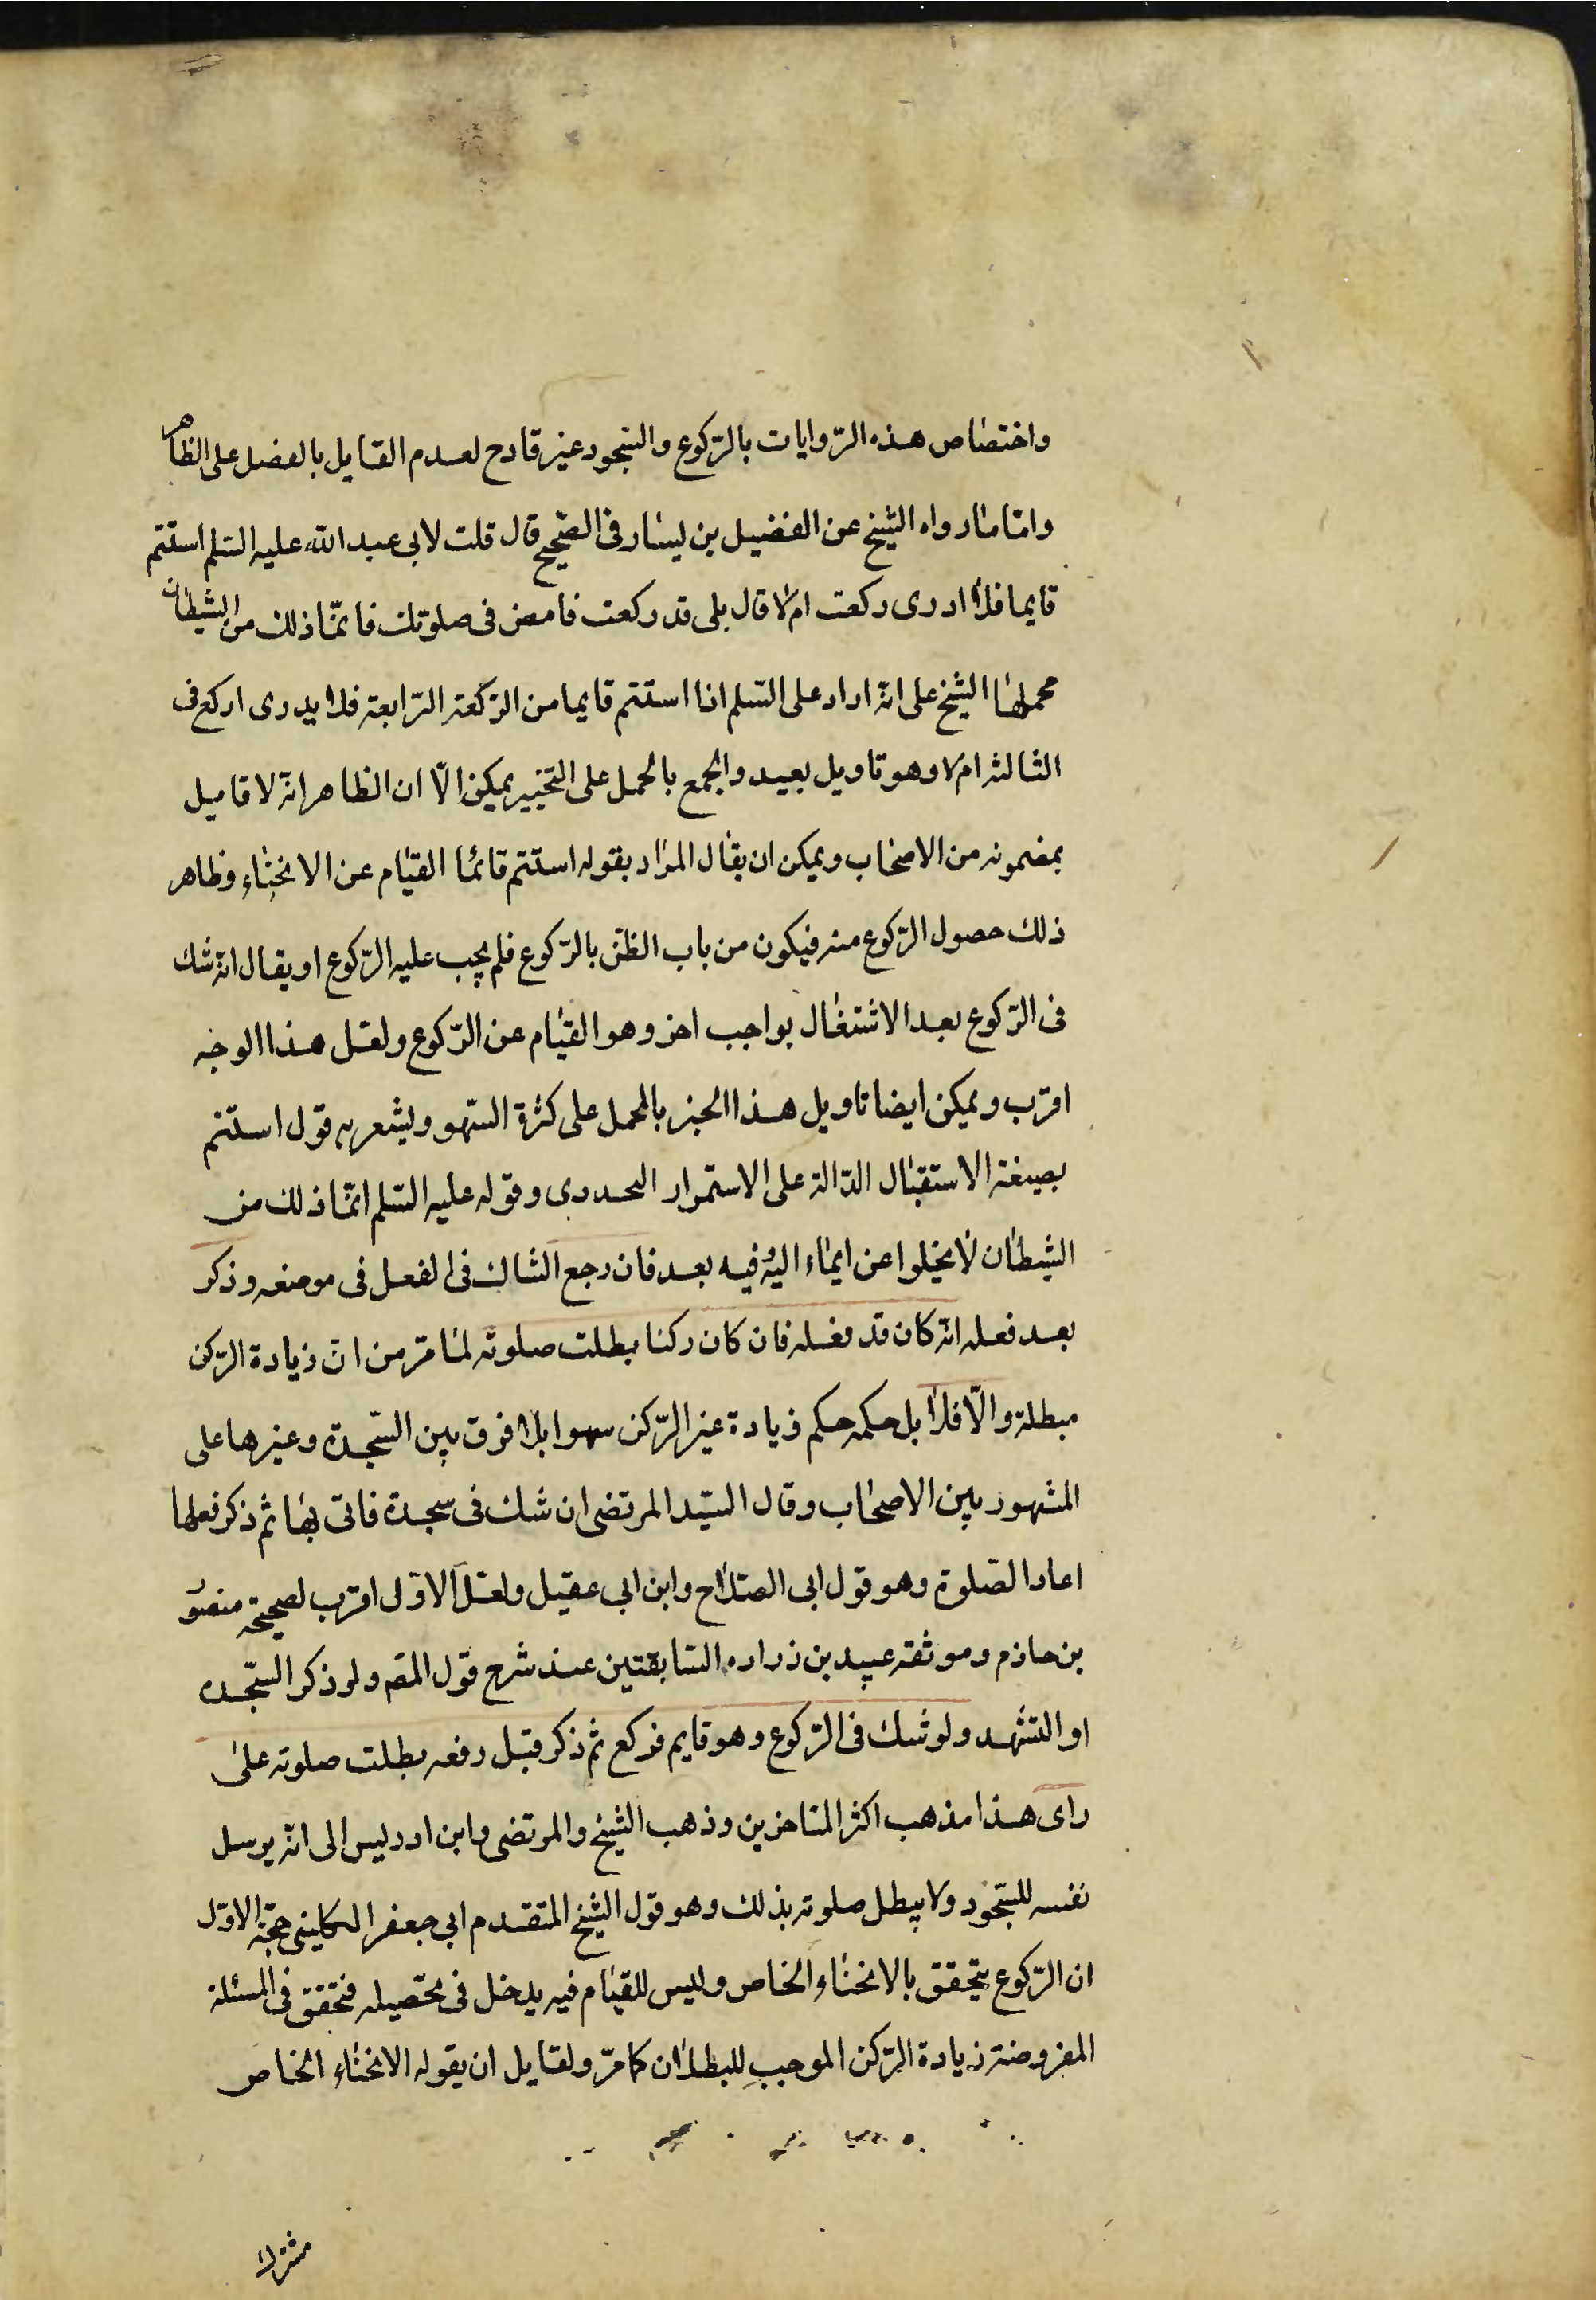 واختصاص هذه الروايات بالركوع والسجود غير قادح لعدم القايل بالفصل على الظاهر
وامّا ما رواه الشيخ عن الفضيل بن يسار فى الصحيح قال قلت لابى عبد الله عليه السلم استتم
قايما فلا ادرى ركعت ام لا قال بلى قد ركعت فامض فى صلوتك فانّما ذلك من الشيطان
محملها الشيخ على انه اراد على السلم اذا استتم قايما من الركعة الرابعة فلا يدرى اركع فى
الثالثه ام لا وهو تاويل بعيد والجمع بالحمل على التخيير يمكن الّا ان الظاهر انه لا قايل
بمضمونه من الاصحاب ويمكن ان يقال المراد بقوله استتم قائما القيام عن الانحناء وظاهر
ذلك حصول الركوع منه فيكون من باب الظن بالركوع فلم يجب عليه الركوع او يقال انه شك
فى الركوع بعد الاشتغال بواجب اخر وهو القيام عن الركوع ولعل هذا الوجه
اقرب ويمكن ايضا تاويل هذا الخبر بالحمل على كثرة السهو ويشعر به قول استتم
بصيغة الاستقبال الدالة على الاستمرار التجددى وقوله عليه السلم انّما ذلك من
الشيطان لا يخلوا عن ايماء اليه وفيه بعد فان رجع الشاك فى الفعل فى موضعه وذكر
بعد فعله انه كان قد فعله فان كان ركنا بطلت صلوته لما مرّ من ان زيادة الركن
مبطلة والّا فلا بل حكمه حكم زيادة غير الركن سهوا بلا فرق بين السجدة وغيرها على
المشهور بين الاصحاب وقال السيّد المرتضى ان شك فى سجدة فاتى بها ثم ذكر فعلها
اعاد الصلوة وهو قول ابى الصلاح وابن ابي عقيل ولعل الاوّل اقرب لصحيحة منصور
بن حازم وموثقة عبيد بن زراره السابقتين عند شرح قول المص ولو ذكر السجده
او التشهد ولو شك فى الركوع وهو قايم فركع ثم ذكر قبل رفعه بطلت صلوته على
راى هذا مذهب اكثر المتاخرين وذهب الشيخ والمرتضى وابن ادريس الى انه يرسل
نفسه للسجود ولا يبطل صلوته بذلك وهو قول الشيخ المتقدم ابى جعفر الكلينى حجة الاوّل
ان الركوع يتحقق بالانحناء الخاص وليس للقيام فيه يدخل فى تحصيله فتحقق فى المسئلة
المفروضة زيادة الركن الموجب للبطلان كما مرّ ولقايل ان يقوله الانحناء الخاص
مشترك